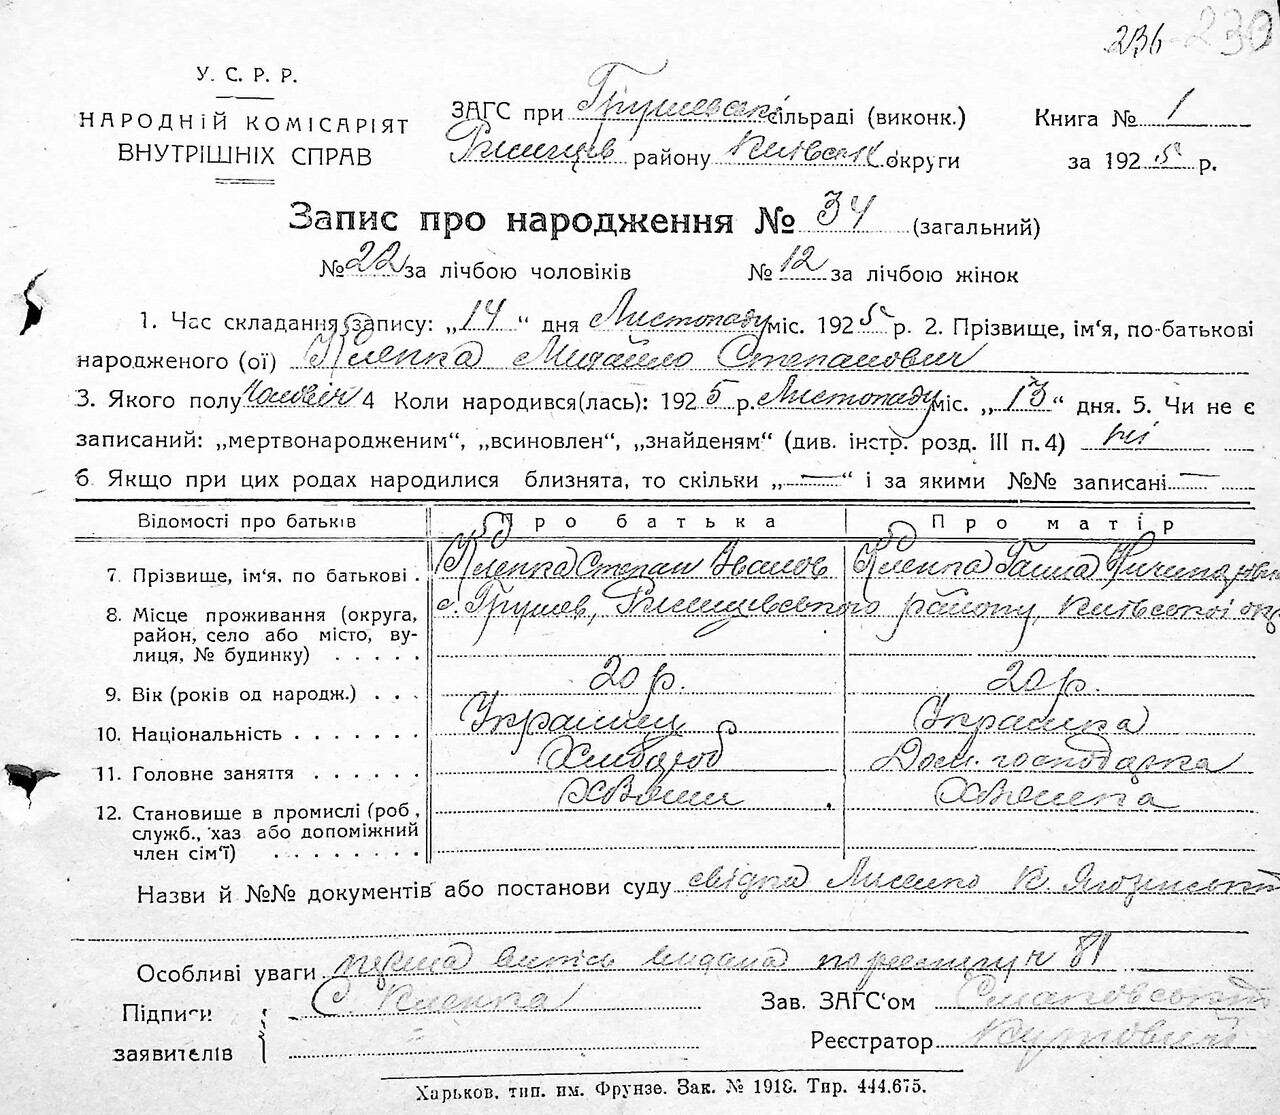 236 230
У. С. Р. Р.
НАРОДНІЙ КОМІСАРІЯТ
ВНУТРІШНІХ СПРАВ
ЗАГС при Грушевськ сільраді (виконк.)
Ржищев району Київськ округи
Книга № 1
за 1925 р.
Запис про народження № 34 (загальний)
№ 22 за лічбою чоловіків № 12 за лічбою жінок
1. Час складання запису: „14“ дня Листопаду міс. 1925 р. 2. Прізвище, ім'я, по-батькові
народженого (ої) Клепка Михайло Степанович
3. Якого полу Чоловіч 4 Коли народився(лась): 1925 р. Листопаду міс. „13“ дня. 5. Чи не є
записаний: „мертвонародженим“, „всиновлен“, „знайденям“ (див. інстр. розд. III п. 4) ні
6 Якщо при цих родах народилися близнята, то скільки „—“ і за якими №№ записані —
Відомості про батьків Про батька Про матір
7. Прізвище, ім'я, по батькові . Клепка Степан Іванов Клепка Ганна
8. Місце проживання (округа,
район, село або місто, ву-
лиця, № будинку) . . . . .
с. Грушев, Ржищевського району, Київської окр
9. Вік (років од народж.) . . . 20 р. 20 р.
10. Національність . . . . . . . Українец Українка
11. Головне заняття . . . . . . Хлібороб Дом. господарка
12. Становище в промислі (роб,
служб., хаз або допоміжний
член сім'ї) . . . . . . . .
Назви й №№ документів або постанови суду свідка Лисенко К
Особливі уваги перша випись видана по реєстру № 81
Підписи
заявителів
С Клепка
Зав. ЗАГС'ом
Реєстратор
Харьков. тип. им. Фрунзе. Зак. № 1918. Тир. 444.675.